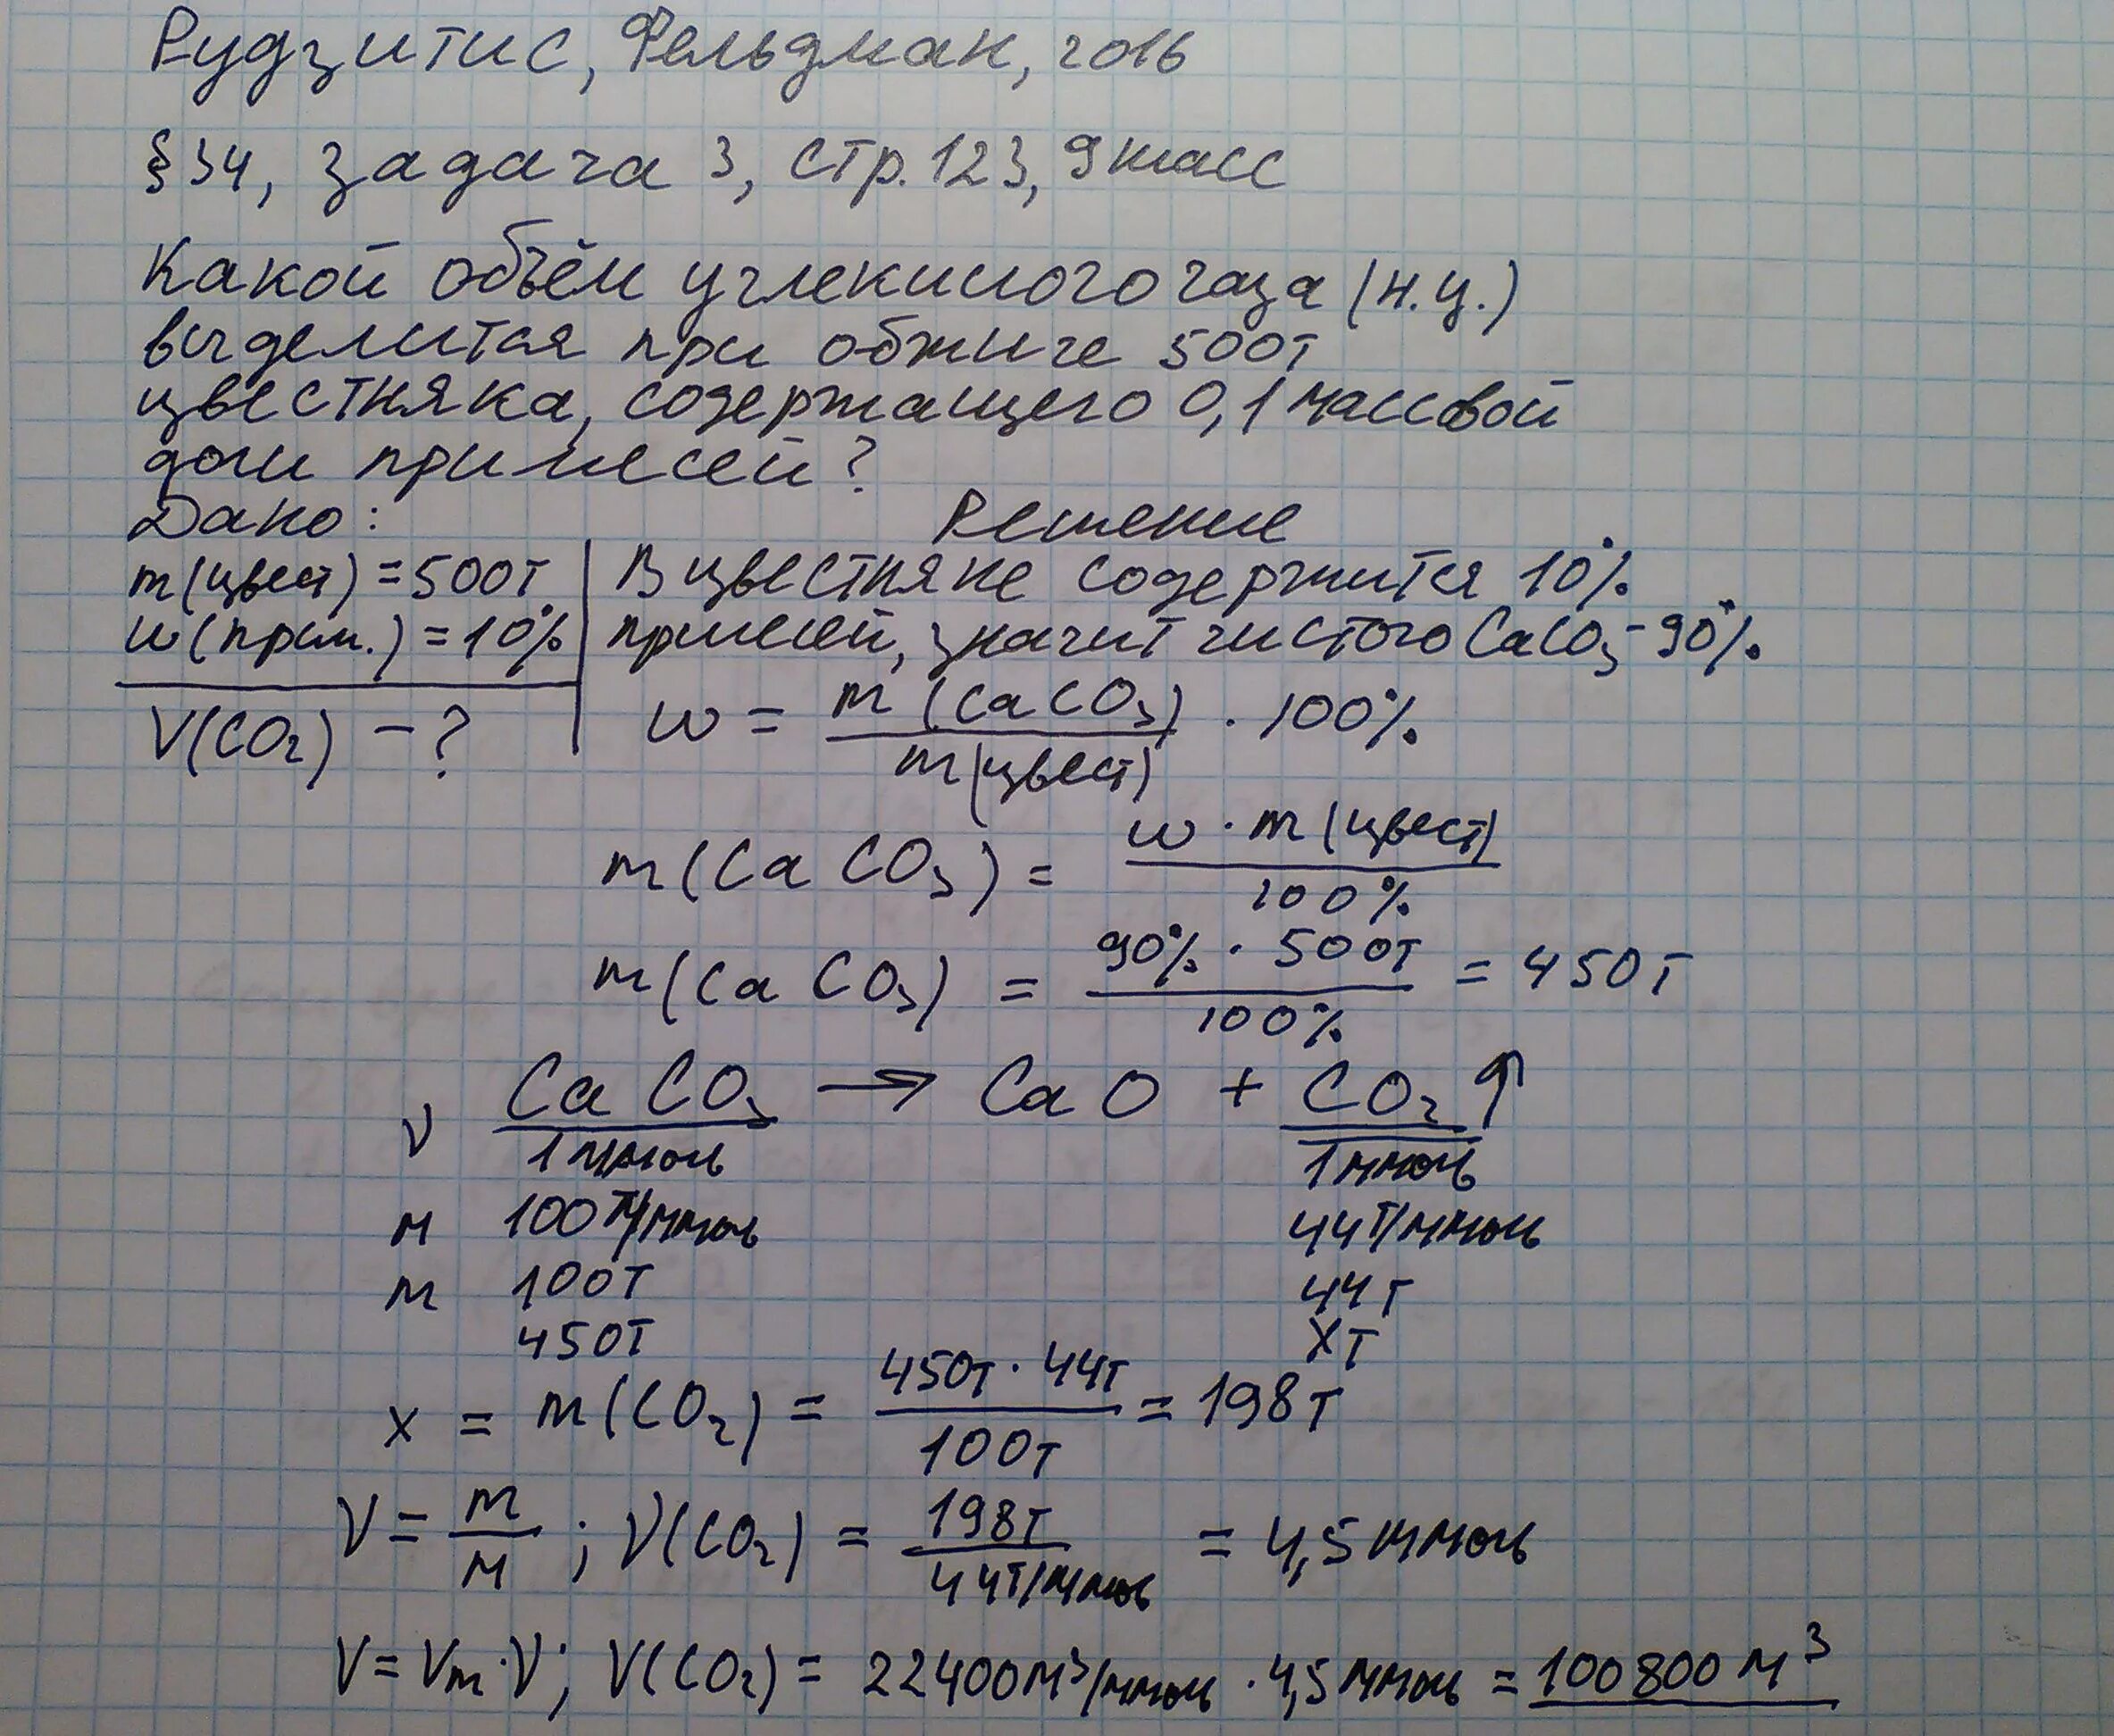 Рудзитис, Фельдман, 2016
§34, задача 3, стр. 123, 9 класс
Какой объём углекислого газа (н.у.)
выделится при обжиге 500т
известняка, содержащего 0,1 массовой
доли примесей?
Дано:
m(извест) = 500т
w(прим.) = 10%
V(CO₂) - ?
Решение
В известняке содержится 10%
примесей, значит чистого CaCO₃ - 90%
w = m(CaCO₃) / m(извест) · 100%
m(CaCO₃) = w · m(извест) / 100%
m(CaCO₃) = 90% · 500т / 100% = 450т
CaCO₃ → CaO + CO₂↑
ν 1 ммоль 1 ммоль
M 100т/ммоль 44т/ммоль
m 100т 44т
450т xт
x = m(CO₂) = 450т · 44т / 100т = 198т
ν = m / M ; ν(CO₂) = 198т / 44т/ммоль = 4,5 ммоль
V = Vm · ν; V(CO₂) = 22400м³/ммоль · 4,5 ммоль = 100800 м³